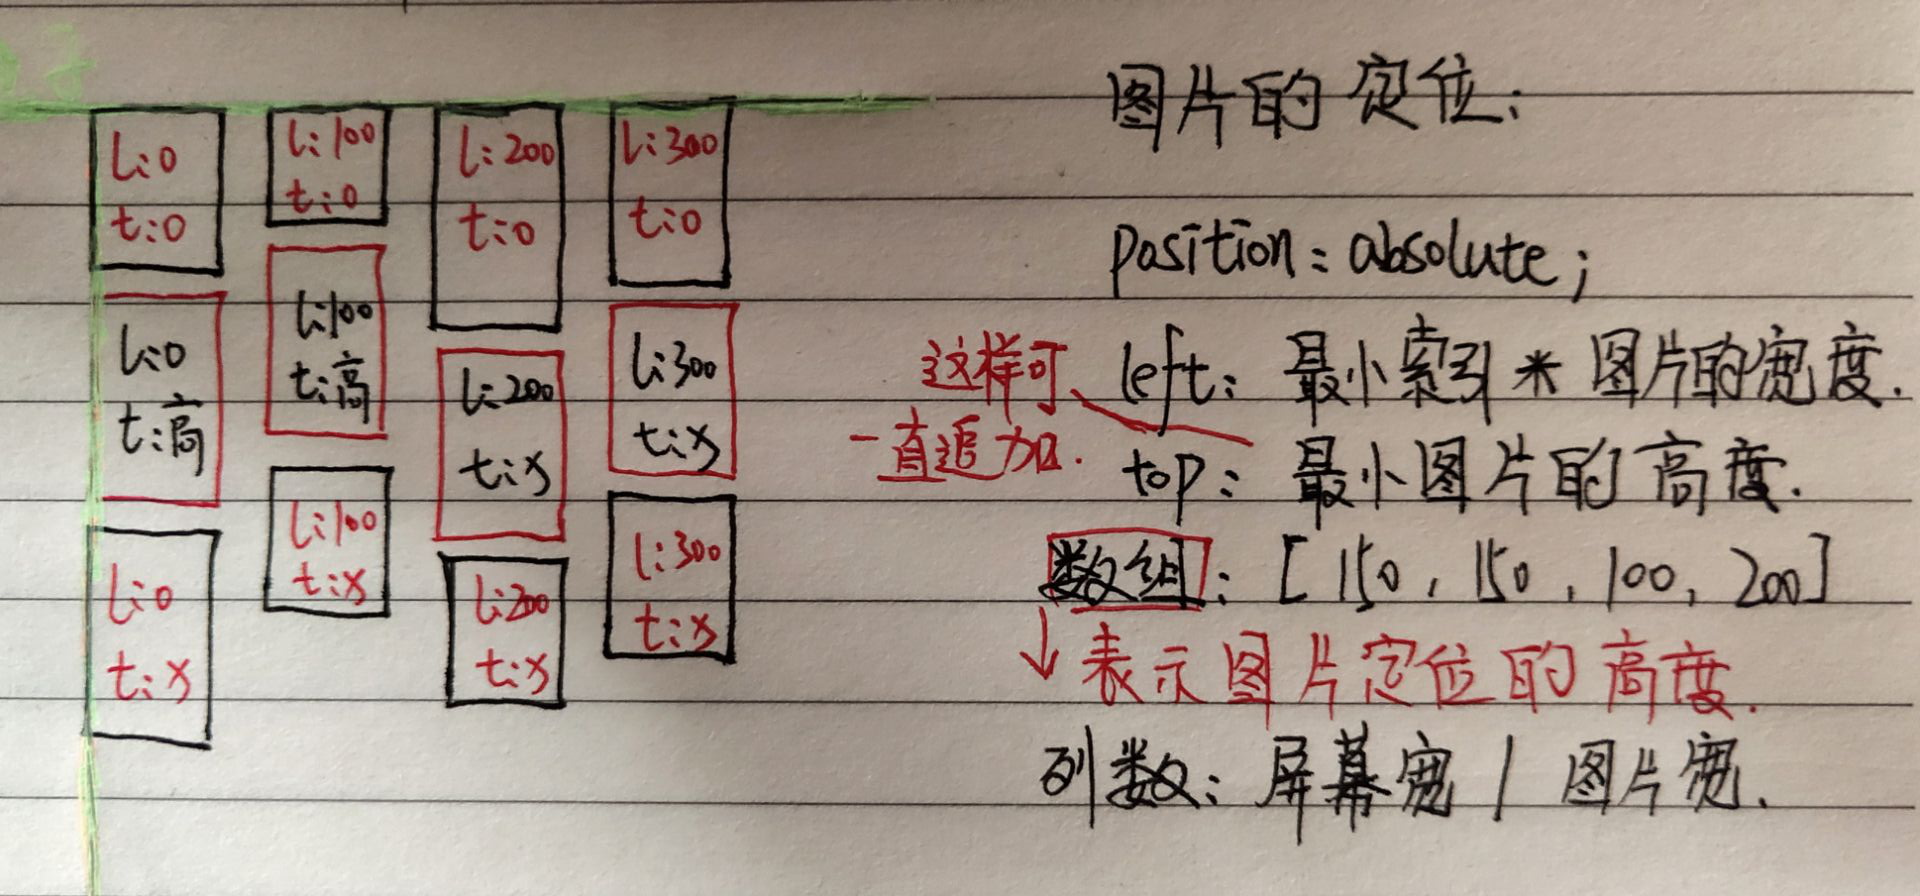 l:0
t:0
l:100
t:0
l:200
t:0
l:300
t:0
l:0
t:高
l:100
t:高
l:200
t:x
l:300
t:x
l:0
t:x
l:100
t:x
l:200
t:x
l:300
t:x
图片的定位:
position:absolute;
left: 最小索引*图片的宽度.
这样可
一直追加.
top: 最小图片的高度.
数组: [150, 150, 100, 200]
↓表示图片定位的高度.
列数: 屏幕宽 / 图片宽.